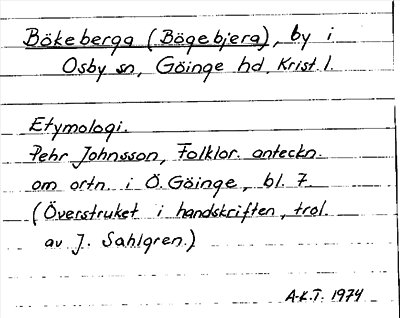 Bökeberga (Bögebjera), by i
Osby sn, Göinge hd, Krist. l.
Etymologi.
Pehr Johnsson, Folklor. anteckn.
om ortn. i Ö. Göinge, bl. 7.
(Överstruket i handskriften, trol.
av J. Sahlgren.)
A-K.T. 1974